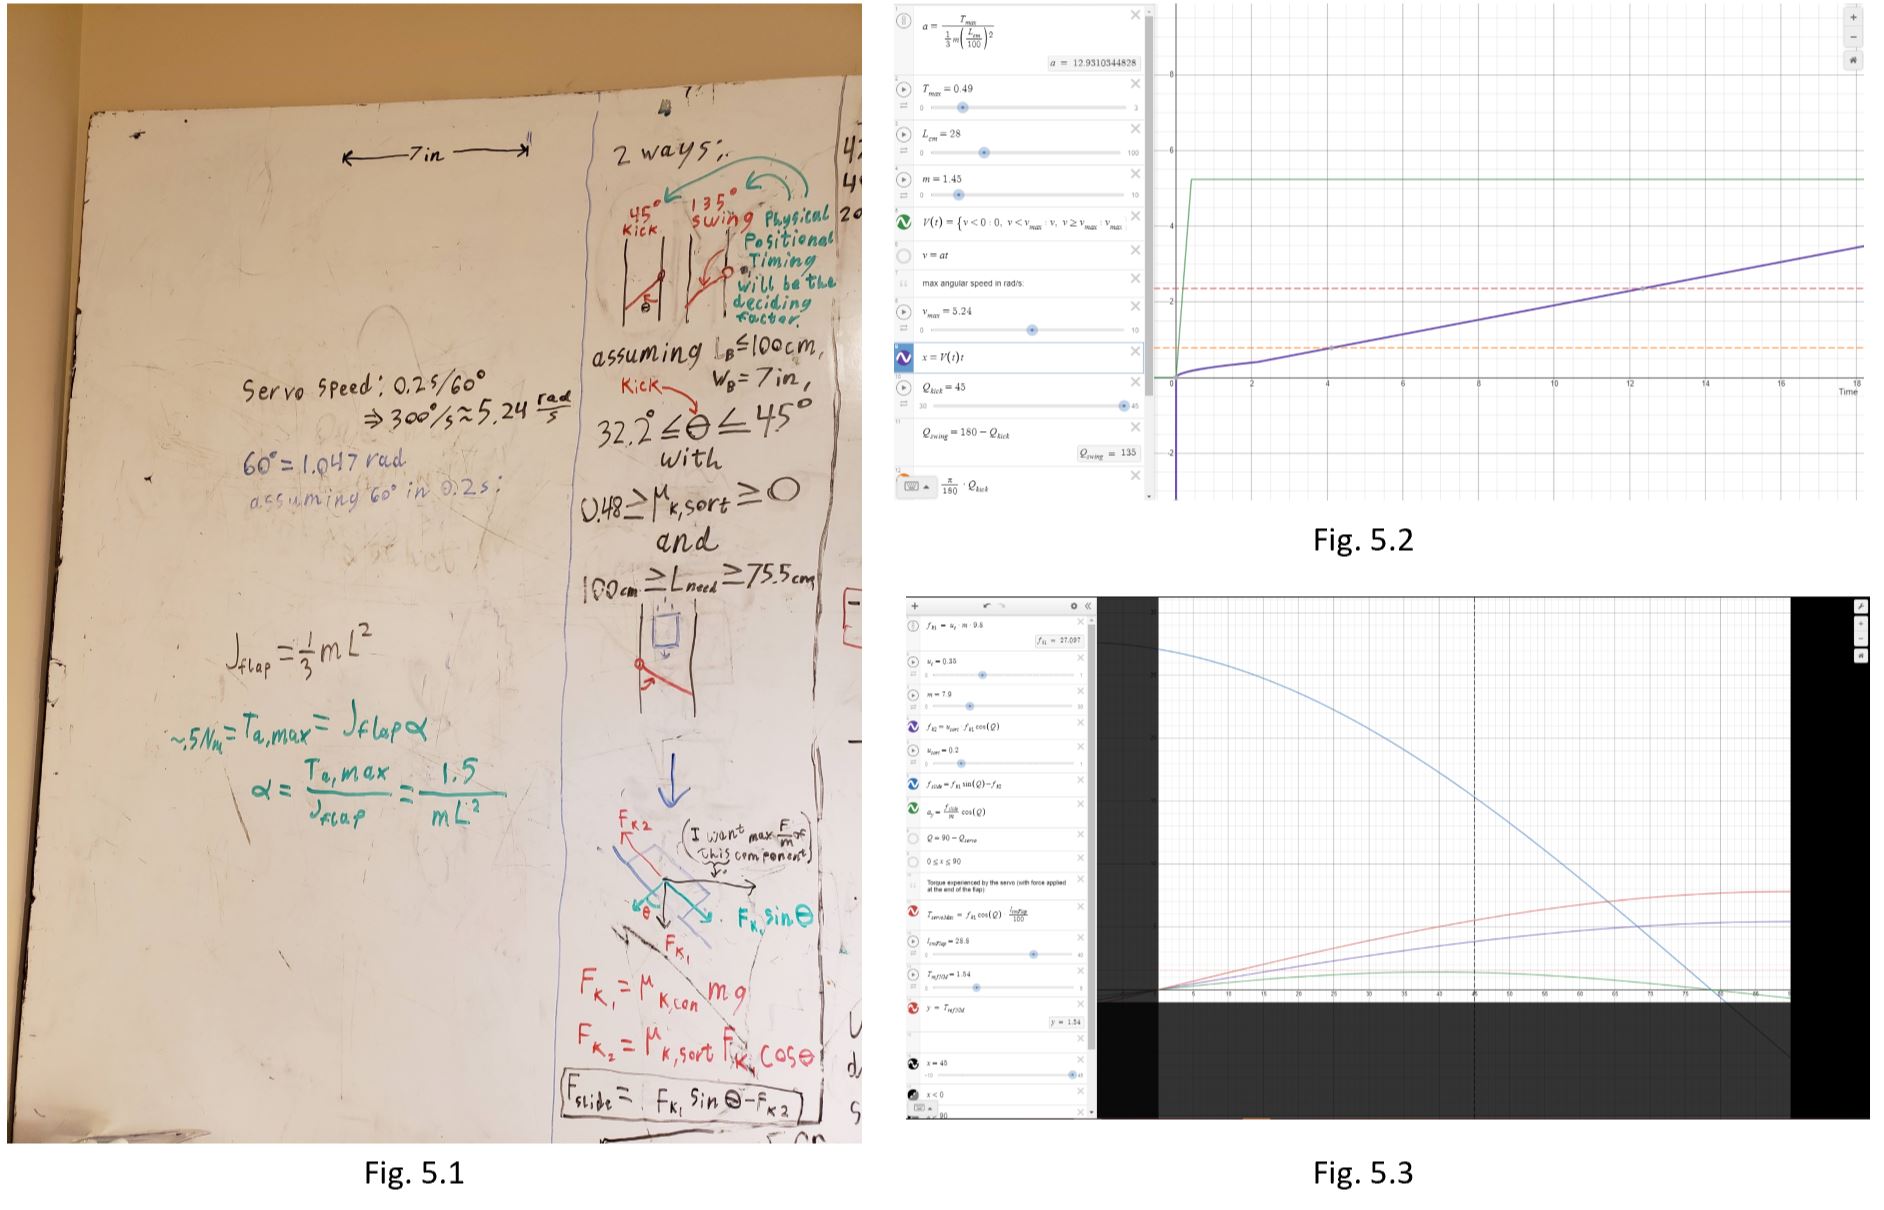 7in
Servo Speed: 0.2s/60°
⇒ 300°/s ≈ 5.24 rad/s
60° = 1.047 rad
assuming 60° in 0.2s:
J_flap = 1/3 mL²
~.5Nm = T_a,max = J_flap α
α = T_a,max / J_flap = 1.5 / mL²
2 ways:
45° Kick
135° swing
Physical
Positional
Timing
will be the
deciding
factor.
θ
assuming L_B ≤ 100cm,
W_B = 7in,
Kick
32.2° ≤ θ ≤ 45°
with
0.48 ≥ μ_K,sort ≥ 0
and
100cm ≥ L_need ≥ 75.5cm
F_K2
(I want max F/m of
this component)
θ
F_K1 sin θ
F_K1
F_K1 = μ_K,con mg
F_K2 = μ_K,sort F_K1 cos θ
F_slide = F_K1 sin θ - F_K2
Fig. 5.1
a = T_max / (1/3 m (L_cm/100)²)
a = 12.9310344828
T_max = 0.49
0 3
L_cm = 28
0 100
m = 1.45
0 10
V(t) = {v < 0 : 0, v < v_max : v, v ≥ v_max : v_max
v = at
max angular speed in rad/s:
v_max = 5.24
0 10
x = V(t)t
Q_kick = 45
30 45
Q_swing = 180 − Q_kick
Q_swing = 135
π/180 · Q_kick
8
6
4
2
0 2 4 6 8 10 12 14 16 18
Time
-2
Fig. 5.2
f_k1 = u_f · m · 9.8
f_k1 = 27.097
u_f = 0.35
m = 7.9
f_k2 = u_sort · f_k1 cos(Q)
u_sort = 0.2
f_slide = f_k1 sin(Q) − f_k2
a_y = f_slide/m cos(Q)
Q = 90 − Q_servo
0 ≤ x ≤ 90
Torque experienced by the servo (with force applied
at the end of the flap)
T_servoMax = f_k1 cos(Q) · l_cmFlap/100
l_cmFlap = 28.8
= 1.54
y = 1.54
x = 45
x < 0
5 10 15 20 25 30 35 40 45 50 55 60 65 70 75 80
Fig. 5.3